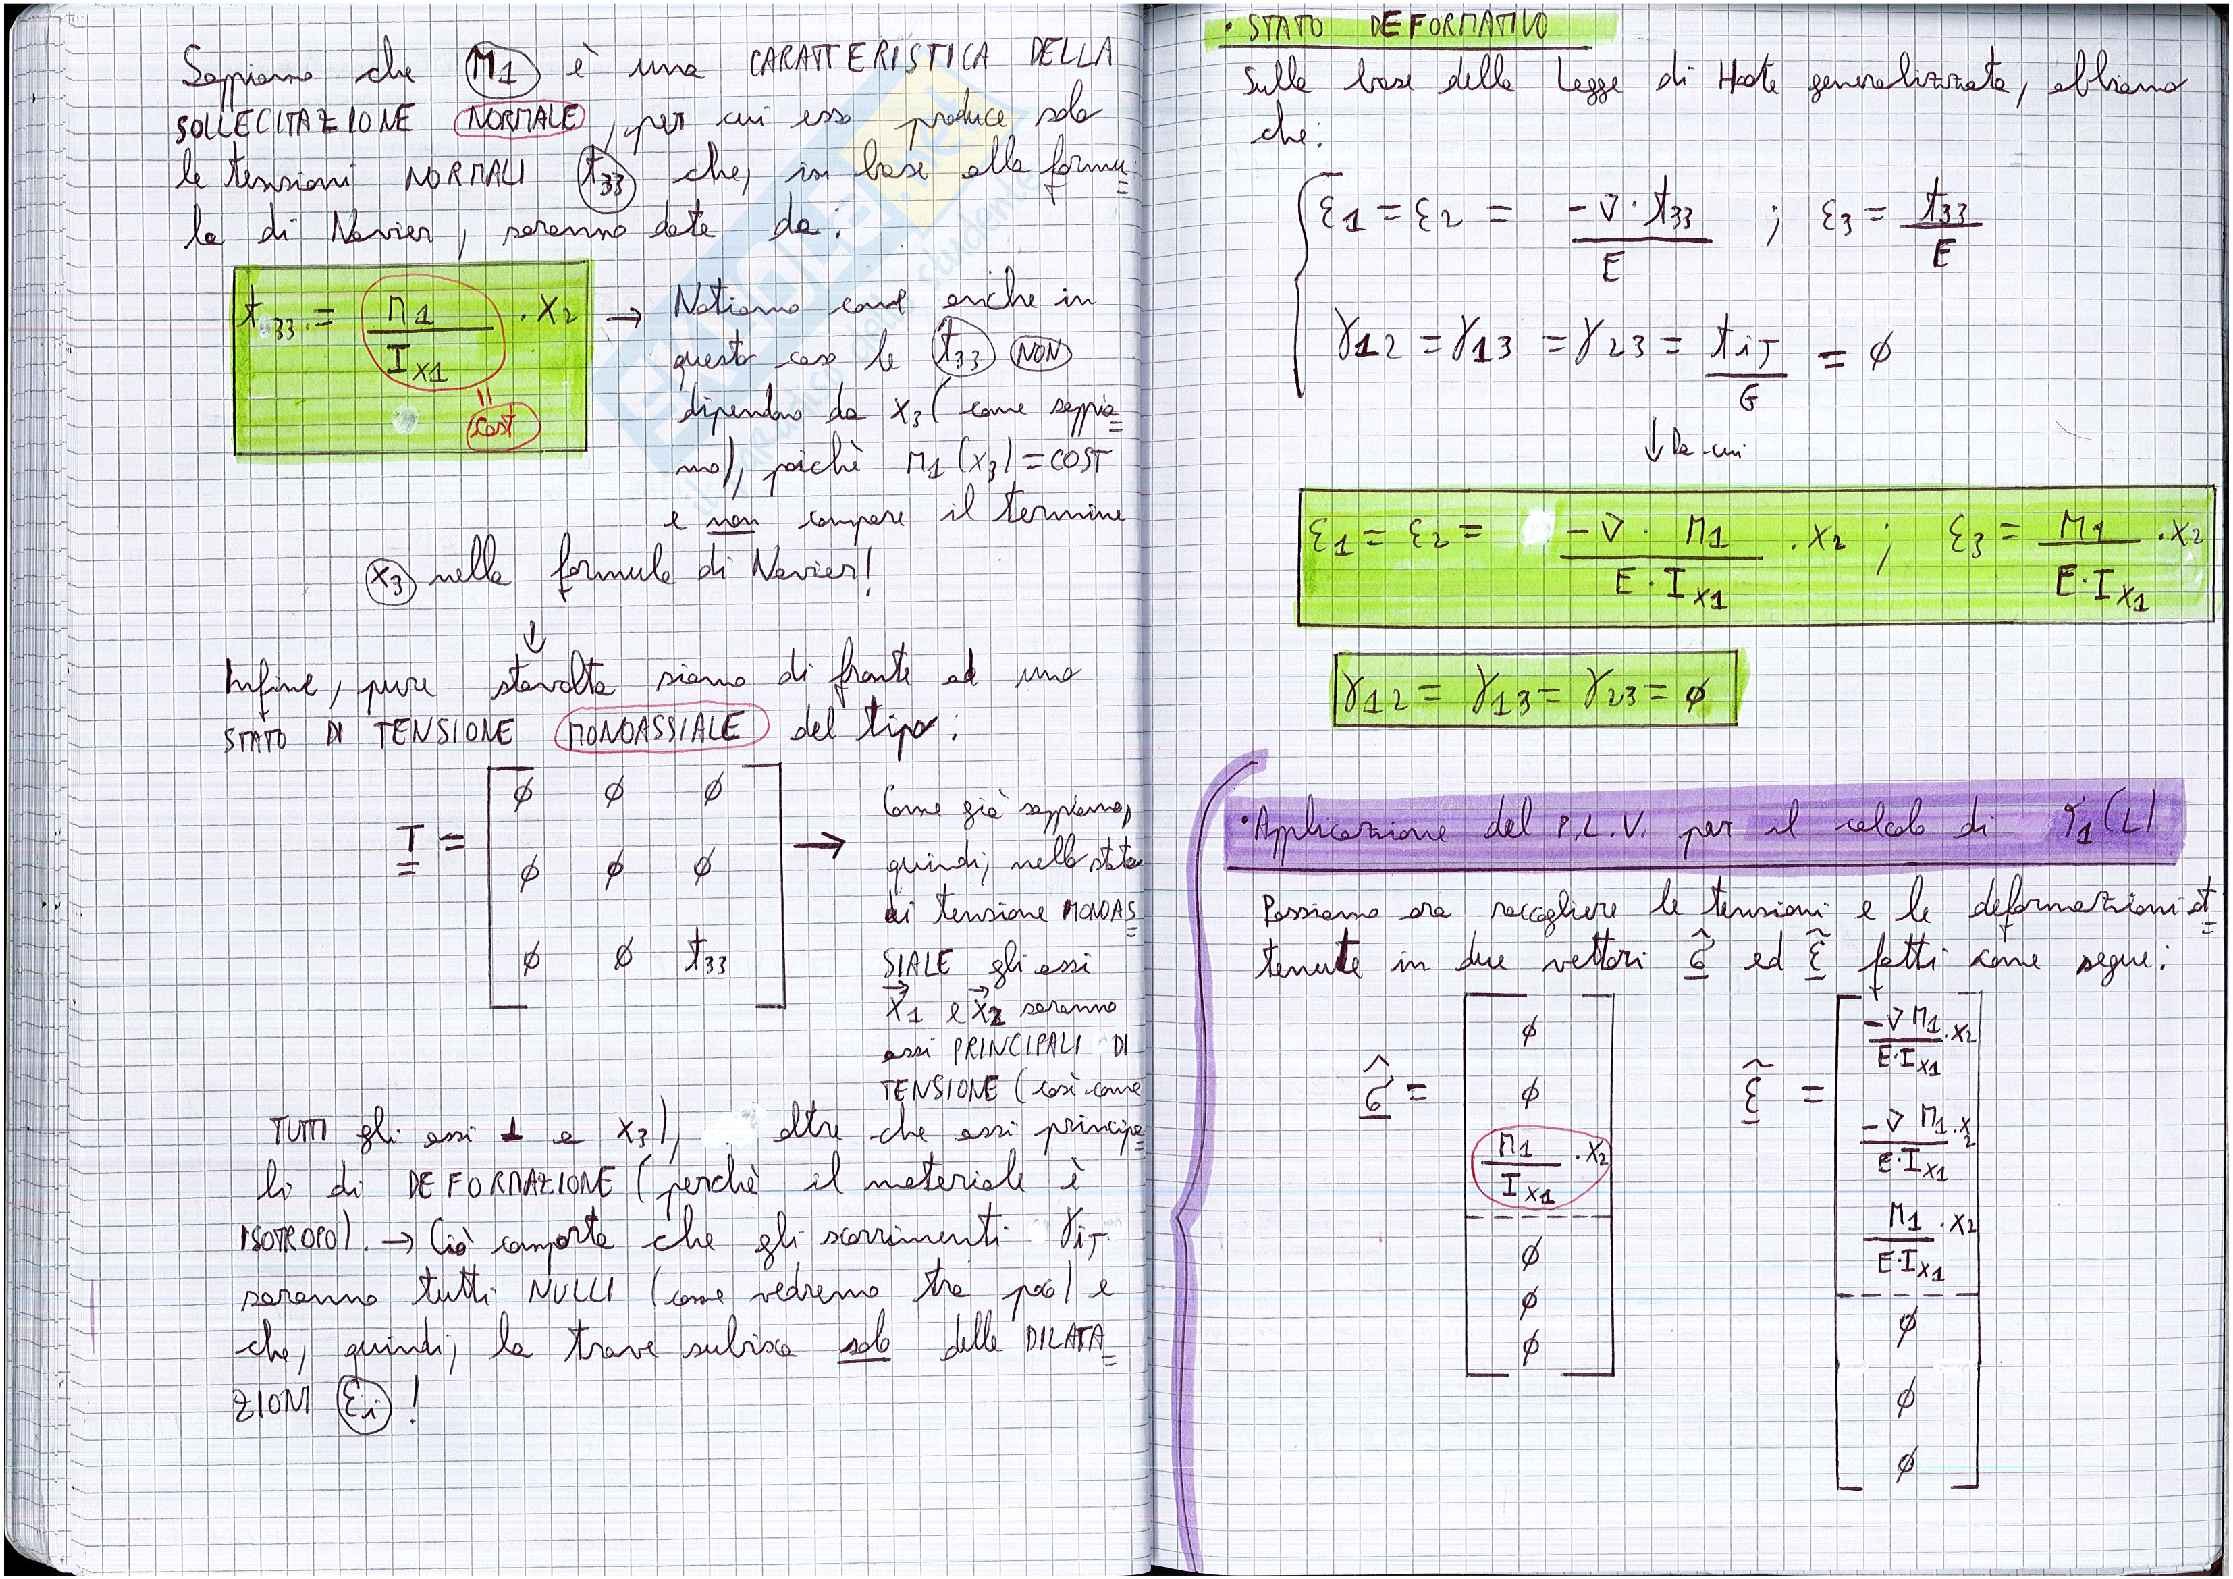 Sappiamo che M1 è una CARATTERISTICA DELLA
SOLLECITAZIONE NORMALE, per cui essa produce solo
le tensioni NORMALI t33 che, in base alla formu=
la di Navier, saranno date da:
t33 = M1/Ix1 · x2 → Notiamo come anche in
questo caso le t33 NON
= cost
dipendono da x3 (come sappia=
mo), poichè M1(x3) = COST
e non compare il termine
x3 nella formula di Navier!
↓
Infine, pure stavolta siamo di fronte ad uno
STATO DI TENSIONE MONOASSIALE del tipo:
T = [ø ø ø
ø ø ø
ø ø t33] →
Come già sappiamo,
quindi, nello stato
di tensione MONOAS=
SIALE gli assi
x1 e x2 saranno
assi PRINCIPALI DI
TENSIONE (così come
TUTTI gli assi ⊥ a x3), oltre che assi principa=
li di DEFORMAZIONE (perchè il materiale è
ISOTROPO). → Ciò comporta che gli scorrimenti γiJ
saranno tutti NULLI (come vedremo tra poco) e
che, quindi, la trave subisca solo delle DILATA=
ZIONI εi!
• STATO DEFORMATIVO
Sulla base della Legge di Hooke generalizzata, abbiamo
che:
ε1 = ε2 = -ν · t33/E ; ε3 = t33/E
γ12 = γ13 = γ23 = tiJ/G = ø
↓ Da cui
ε1 = ε2 = -ν · M1/E · Ix1 · x2 ; ε3 = M1/E · Ix1 · x2
γ12 = γ13 = γ23 = ø
• Applicazione del P.L.V. per il calcolo di φ1(L)
Possiamo ora raccogliere le tensioni e le deformazioni ot=
tenute in due vettori σ̂ ed ε̃ fatti come segue:
σ̂ = [ø
ø
M1/Ix1 · x2
ø
ø
ø]
ε̃ = [-ν M1/E·Ix1 · x2
-ν M1/E·Ix1 · x2
M1/E·Ix1 · x2
ø
ø
ø]